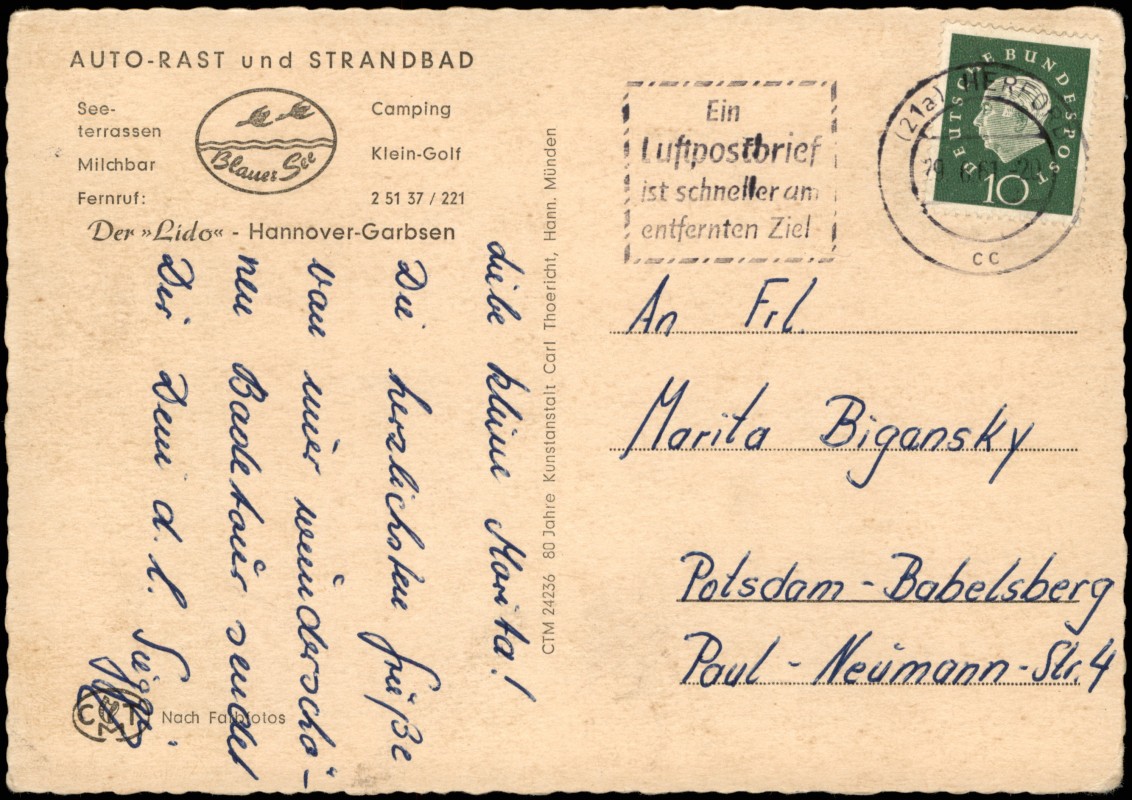 AUTO-RAST und STRANDBAD
See-
terrassen
Milchbar
Fernruf:
Blauer See
Camping
Klein-Golf
2 51 37 / 221
Der »Lido« - Hannover-Garbsen
Liebe kleine Marita!
Die herzlichsten Grüße
von einer wunderschö-
nen Badetour sendet
Dir Dein d. l. Siggi.
Nach Farbfotos
CTM 24236 80 Jahre Kunstanstalt Carl Thoericht, Hann. Münden
Ein
Luftpostbrief
ist schneller am
entfernten Ziel
(21a) HERFORD
cc
DEUTSCHE BUNDESPOST
10
An Frl.
Marita Bigansky
Potsdam-Babelsberg
Paul-Neumann-Str. 4